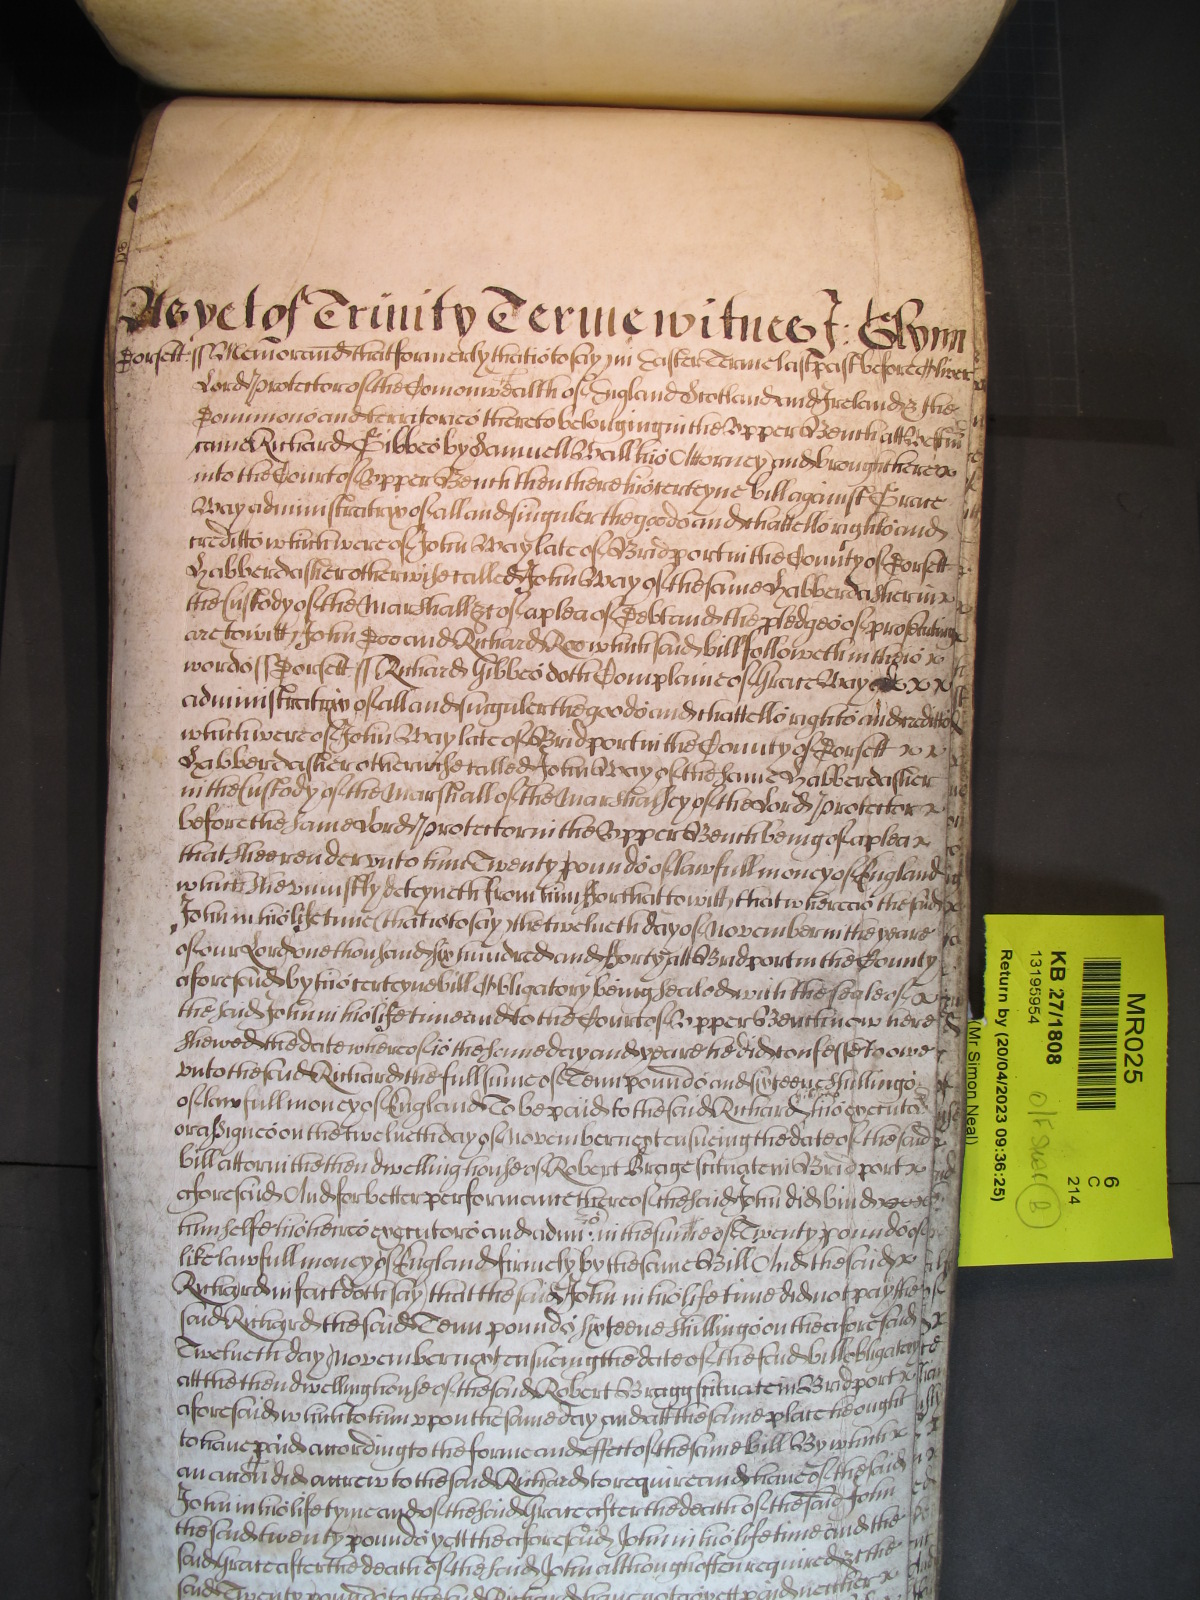 As yet of Trinity Terme witnes J: Glynn
Dorsett ss Memorand that formerly that is to say in Easter Terme last past before Oliver
Lord Protector of the Comonwealth of England Scotland and Ireland & the
Dominions and territories thereto belonging in the Upper Bench att Westm
came Richard Gibbes by Samuell Wall his Attorney and brought here
into the Court of Upper Bench then there his certeyne bill against Grace
Way administratrix of all and singuler the goods and chattells rights and
creditts which were of John Way late of Bridport in the County of Dorsett
Habberdasher otherwise called John Way of the same Habberdasher in
the Custody of the Marshall &c of a plea of Debt and the pledges of prosecuting
are to witt John Doo and Richard Roo which said bill followeth in theis
words ss Dorsett ss Richard Gibbes doth Complaine of Grace Way
administratrix of all and singuler the goods and chattells rights and creditts
which were of John Way late of Bridport in the County of Dorsett
Habberdasher otherwise called John Way of the same Habberdasher
in the Custody of the Marshall of the Marshalsey of the Lord Protector
before the same Lord Protector in the Upper Bench being of a plea
that shee render unto him Twenty pounds of lawfull money of England
which she uniustly deteyneth from him For that to witt that whereas the said
John in his life time that is to say the twelueth day of November in the yeare
of our Lord one thousand six hundred and Forty att Bridport in the County
aforesaid by his certeyne bill Obligatory being sealed with the seale of
the said John in his life time and to the Court of Upper Bench now here
shewed the date whereof is the same day and yeare he did confesse to owe
unto the said Richard the full sume of Tenn pounds and sixteene shillings
of lawfull money of England To be paid to the said Richard his executo
or assignes on the twelueth day of November next ensueing the date of the said
bill att or in the then dwelling house of Robert Bragg scituate in Bridport
aforesaid And for better performance thereof the said John did bind
himselfe his heires executors and adm: in the sume of Twenty pounds of
like lawfull money of England firmely by the same Bill And the said
Richard in fact doth say that the said John in his life time did not pay the
said Richard the said Tenn pounds sixteene shillings on the aforesaid
Twelueth day November next ensueing the date of the said bill obligatory
att the then dwelling house of the said Robert Bragg scituate in Bridport
aforesaid which to him upon the same day and att the same place he ought
to haue paid according to the forme and effect of the same bill By which
an accon did accrew to the said Richard to require and haue of the said
John in his life tyme and of the said Grace after the death of the said John
the said twenty pounds yett the aforesaid John in his life time and the
said Grace after the death of the said John although often required &c the
said Twenty pounds to the said Richard haue not as yett paid neither
MR025
6
C
214
KB 27/1808
13195954
Return by (20/04/2023 09:36:25)
(Mr Simon Neal)